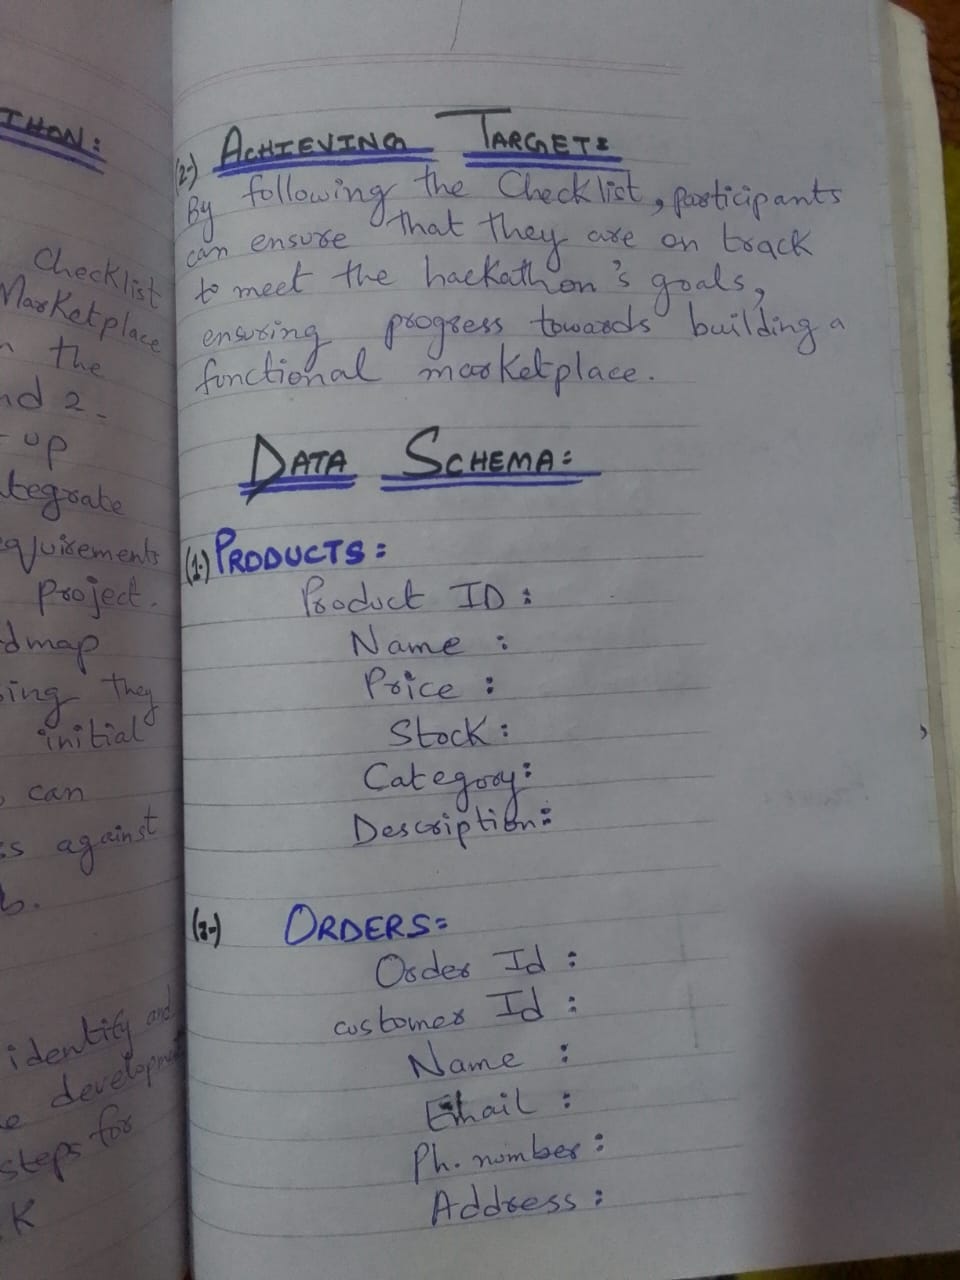 THON:
Checklist
Marketplace
the
nd 2-
- up
tegrate
equirements
project.
dmap
sing they
initial
can
ss against
b.
identify and
e development
steps for
K
(2-) ACHIEVING TARGET:
By following the Checklist, participants
can ensure that they are on track
to meet the hackathon's goals,
ensuring progress towards building a
functional marketplace.
DATA SCHEMA:
(1-) PRODUCTS:
Product ID:
Name:
Price:
Stock:
Category:
Description:
(2-) ORDERS:
Order Id:
customer Id:
Name:
Email:
Ph. number:
Address: